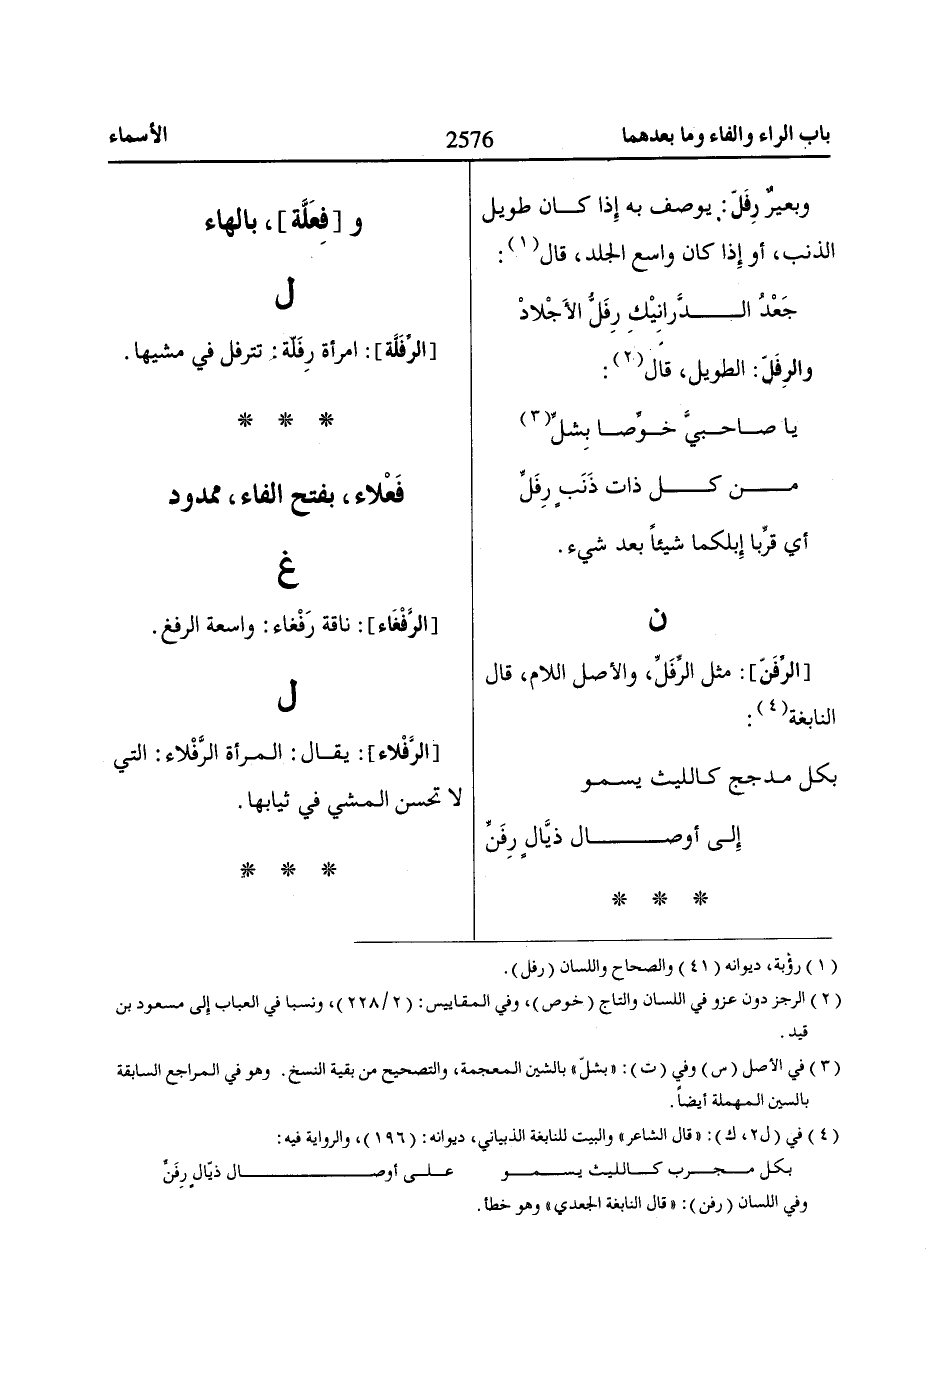 باب الراء والفاء وما بعدهما 2576 الأسماء
وبعيرٌ رِفَلّ: يوصف به إذا كان طويل
الذنب، أو إذا كان واسع الجلد، قال(١):
جَعْدُ الدَّرانِيْكِ رِفَلُّ الأَجْلادْ
والرِفَلّ: الطويل، قال(٢):
يا صاحبيَّ خوِّصا بِشلٍّ(٣)
من كل ذات ذَنَبٍ رِفَلِّ
أي قرِّبا إبلكما شيئاً بعد شيء.
ن
[الرِّفَنّ]: مثل الرِّفَلِّ، والأصل اللام، قال
النابغة(٤):
بكل مدجج كالليث يسمو
إلى أوصال ذيَّالٍ رِفَنِّ
* * *
و [فِعَلَّة]، بالهاء
ل
[الرِّفَلَّة]: امرأة رِفَلّة: تترفل في مشيها.
* * *
فَعْلاء، بفتح الفاء، ممدود
غ
[الرَّفْغَاء]: ناقة رَفْغاء: واسعة الرفغ.
ل
[الرَّفْلاء]: يقال: المرأة الرَّفْلاء: التي
لا تحسن المشي في ثيابها.
* * *
(١) رؤْبة، ديوانه (٤١) والصحاح واللسان (رفل).
(٢) الرجز دون عزو في اللسان والتاج (خوص)، وفي المقاييس: (٢/٢٢٨)، ونسبا في العباب إلى مسعود بن
قيد.
(٣) في الأصل (س) وفي (ت): «بشلّ» بالشين المعجمة، والتصحيح من بقية النسخ. وهو في المراجع السابقة
بالسين المهملة أيضاً.
(٤) في (ل٢، ك): «قال الشاعر» والبيت للنابغة الذبياني، ديوانه: (١٩٦)، والرواية فيه:
بكل مجرب كالليث يسمو على أوصال ذيّالٍ رِفَنِّ
وفي اللسان (رفن): «قال النابغة الجعدي» وهو خطأ.